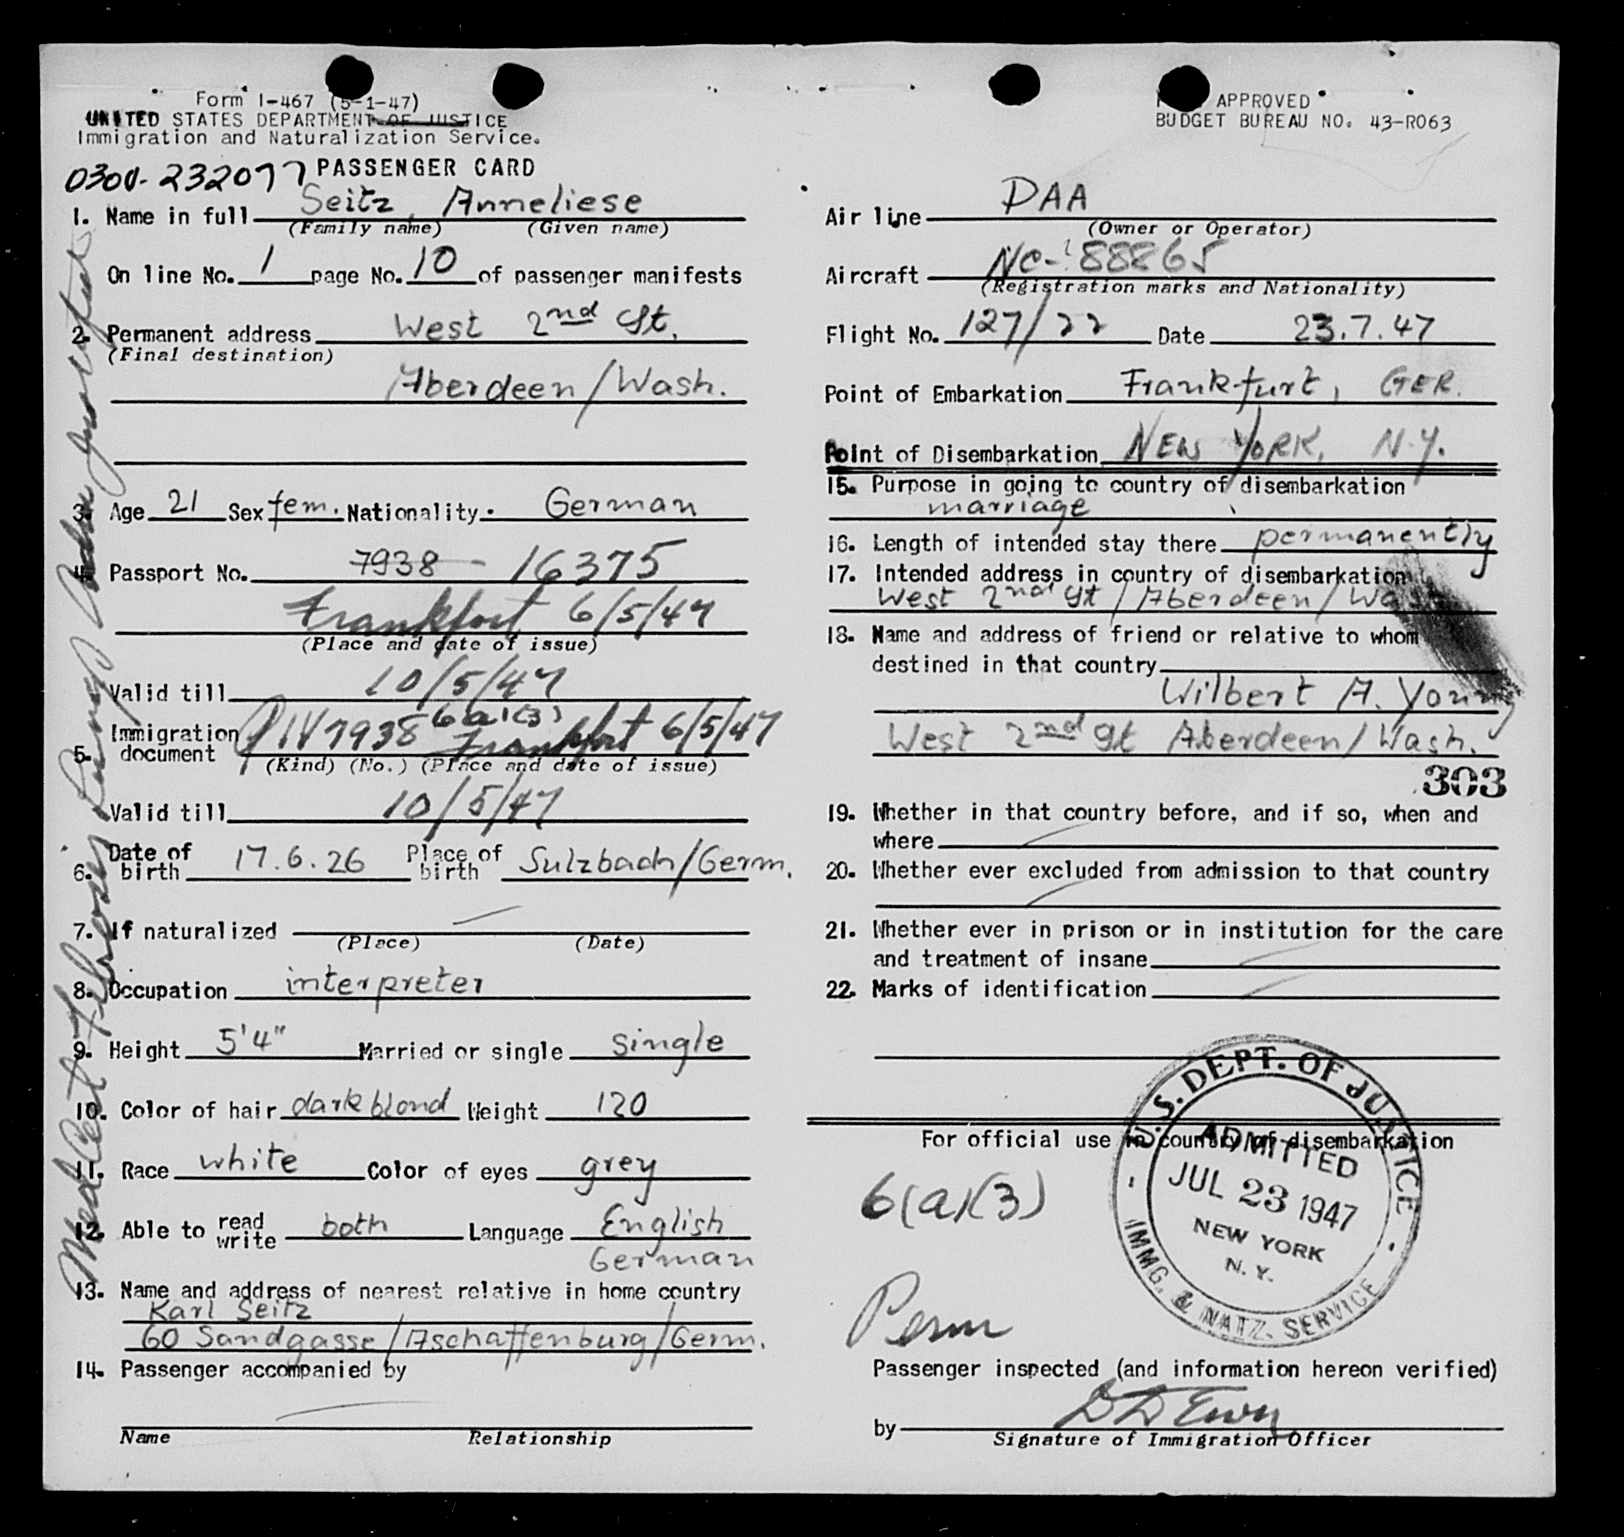 Form I-467 (5-1-47)
UNITED STATES DEPARTMENT OF JUSTICE
Immigration and Naturalization Service.
0300-232077 PASSENGER CARD
1. Name in full Seitz, Anneliese
(Family name) (Given name)
On line No. 1 page No. 10 of passenger manifests
2. Permanent address West 2nd St.
(Final destination)
Aberdeen/Wash.
3. Age 21 Sex fem. Nationality. German
4. Passport No. 7938 - 16375
Frankfort 6/5/47
(Place and date of issue)
Valid till 10/5/47
5. Immigration document PIV 7938 6(a)(3) Frankfort 6/5/47
(Kind) (No.) (Place and date of issue)
Valid till 10/5/47
6. Date of birth 17.6.26 Place of birth Sulzbach/Germ.
7. If naturalized
(Place) (Date)
8. Occupation interpreter
9. Height 5'4" Married or single single
10. Color of hair dark blond Weight 120
11. Race white Color of eyes grey
12. Able to read write both Language English
German
13. Name and address of nearest relative in home country
Karl Seitz
60 Sandgasse/Aschaffenburg/Germ.
14. Passenger accompanied by
Name Relationship
Med Cert Fibrosis
APPROVED
BUDGET BUREAU NO. 43-R063
Air line PAA
(Owner or Operator)
Aircraft NC-88865
(Registration marks and Nationality)
Flight No. 127/22 Date 23.7.47
Point of Embarkation Frankfurt, GER.
Point of Disembarkation NEW YORK, N.Y.
15. Purpose in going to country of disembarkation
marriage
16. Length of intended stay there permanently
17. Intended address in country of disembarkation
West 2nd St/Aberdeen/Wash
18. Name and address of friend or relative to whom
destined in that country
Wilbert A. Young
West 2nd St Aberdeen/Wash.
303
19. Whether in that country before, and if so, when and
where
20. Whether ever excluded from admission to that country
21. Whether ever in prison or in institution for the care
and treatment of insane
22. Marks of identification
For official use in country of disembarkation
6(a)(3)
Perm
U.S. DEPT. OF JUSTICE
ADMITTED
JUL 23 1947
NEW YORK
N.Y.
IMMG. & NATZ. SERVICE
Passenger inspected (and information hereon verified)
by
Signature of Immigration Officer